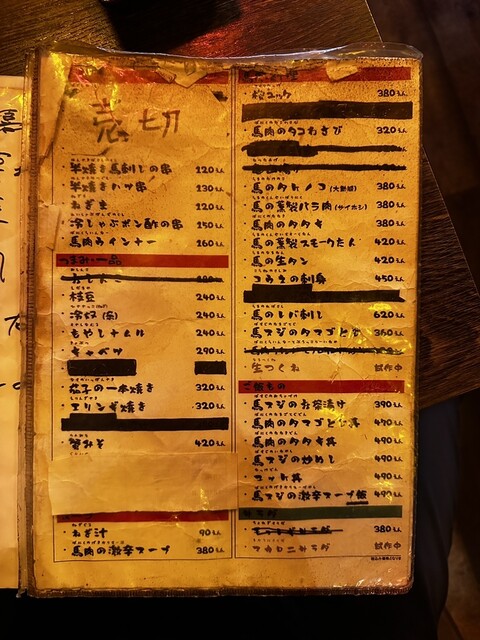 売切
半焼き馬刺しの串 120
半焼きハツ串 130
ねぎま 120
冷しゃぶポン酢の串 150
馬肉ウインナー 160
つまみ・一品
枝豆 240
冷奴 240
もやしナムル 240
キャベツ 290
茄子の一本焼き 320
エリンギ焼き 320
蟹みそ 420
ねぎ汁 90
馬肉の激辛スープ 380
桜ユッケ 380
馬肉のタコわさび 320
馬のタケノコ(大動脈) 380
馬の薫製バラ肉(サイカシ) 380
馬肉のタタキ 380
馬の薫製スモークたん 420
馬の生タン 420
コウネの刺身 450
馬のレバ刺し 620
馬スジのタマゴとじ 360
生つくね 試作中
ご飯もの
馬スジのお茶漬け 390
馬肉のタマゴとじ丼 490
馬肉のタタキ丼 490
馬スジの炒めし 490
ユッケ丼 490
馬スジの激辛スープ飯 490
サラダ
380
マカロニサラダ 試作中